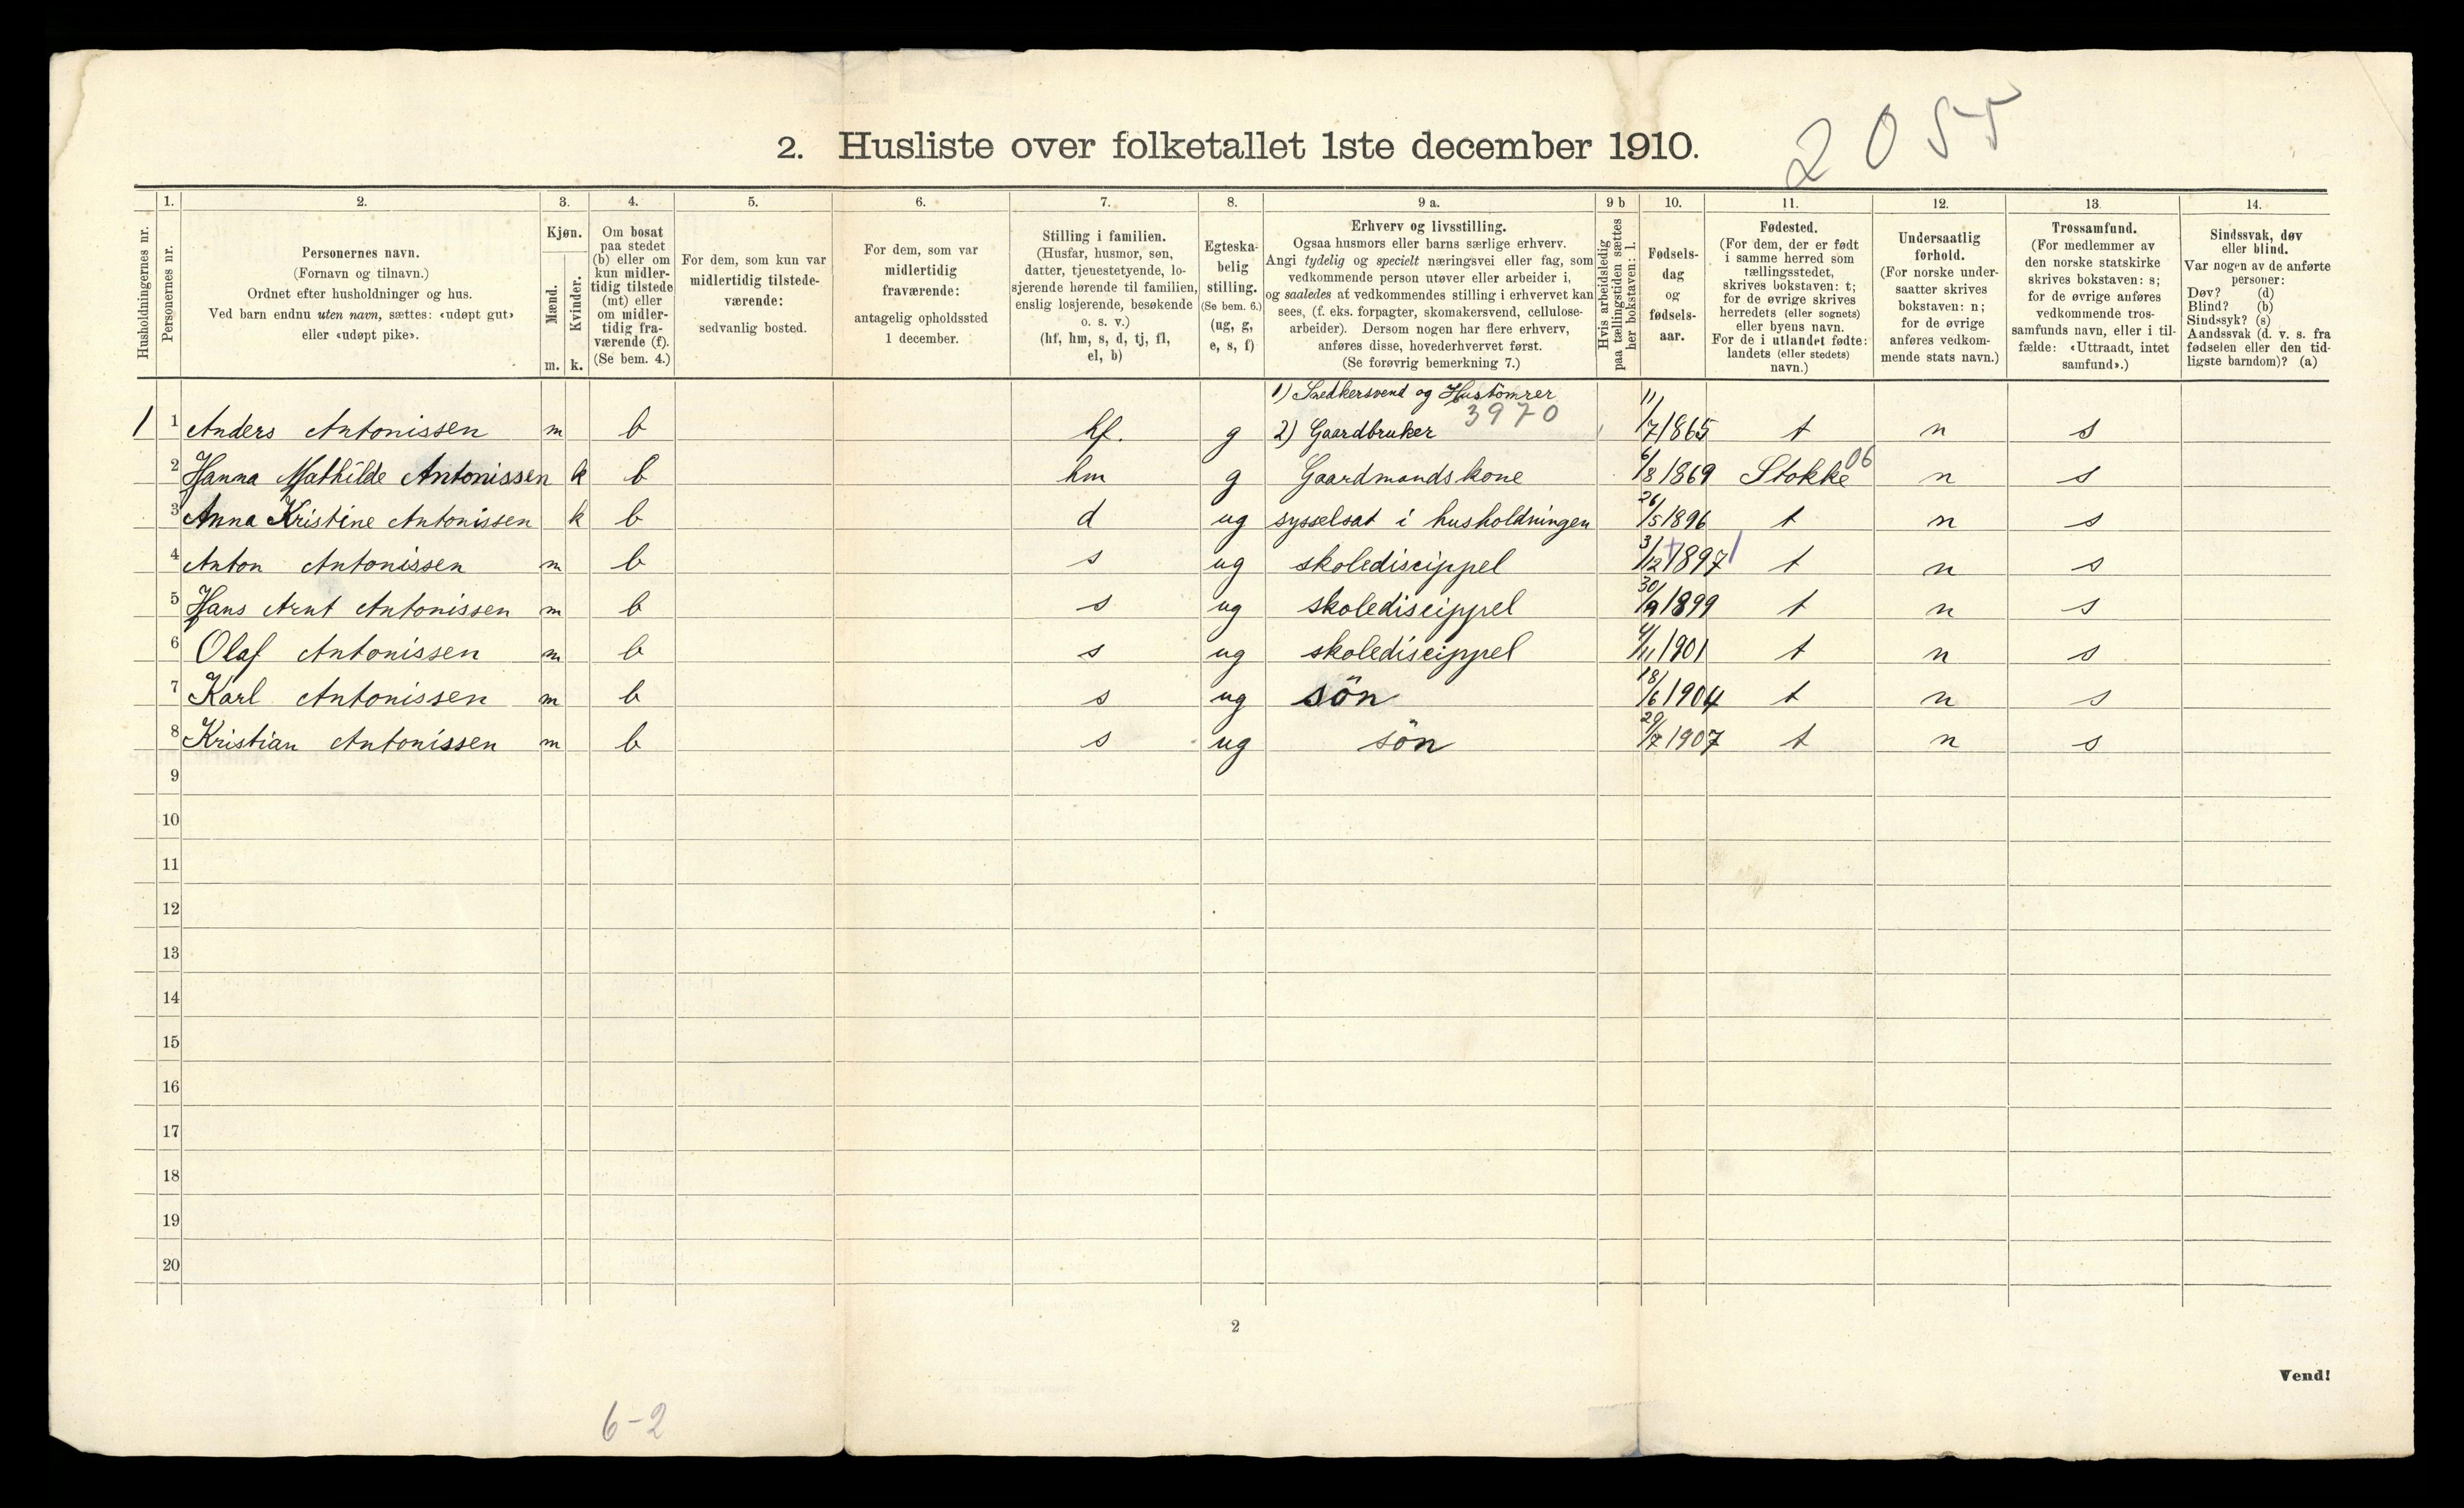 2055
2. Husliste over folketallet 1ste december 1910.
Husholdningernes nr.
1.
Personernes nr.
2.
Personernes navn.
(Fornavn og tilnavn.)
Ordnet efter husholdninger og hus.
Ved barn endnu uten navn, sættes: «udøpt gut»
eller «udøpt pike».
3.
Kjøn.
Mænd.
Kvinder.
m. k.
4.
Om bosat
paa stedet
(b) eller om
kun midler-
tidig tilstede
(mt) eller
om midler-
tidig fra-
værende (f).
(Se bem. 4.)
5.
For dem, som kun var
midlertidig tilstede-
værende:
sedvanlig bosted.
6.
For dem, som var
midlertidig
fraværende:
antagelig opholdssted
1 december.
7.
Stilling i familien.
(Husfar, husmor, søn,
datter, tjenestetyende, lo-
sjerende hørende til familien,
enslig losjerende, besøkende
o. s. v.)
(hf, hm, s, d, tj, fl,
el, b)
8.
Egteska-
belig
stilling.
(Se bem. 6.)
(ug, g,
e, s, f)
9 a.
Erhverv og livsstilling.
Ogsaa husmors eller barns særlige erhverv.
Angi tydelig og specielt næringsvei eller fag, som
vedkommende person utøver eller arbeider i,
og saaledes at vedkommendes stilling i erhvervet kan
sees, (f. eks. forpagter, skomakersvend, cellulose-
arbeider). Dersom nogen har flere erhverv,
anføres disse, hovederhvervet først.
(Se forøvrig bemerkning 7.)
9 b
Hvis arbeidsledig
paa tællingstiden sættes
her bokstaven: l.
10.
Fødsels-
dag
og
fødsels-
aar.
11.
Fødested.
(For dem, der er født
i samme herred som
tællingsstedet,
skrives bokstaven: t;
for de øvrige skrives
herredets (eller sognets)
eller byens navn.
For de i utlandet fødte:
landets (eller stedets)
navn.)
12.
Undersaatlig
forhold.
(For norske under-
saatter skrives
bokstaven: n;
for de øvrige
anføres vedkom-
mende stats navn.)
13.
Trossamfund.
(For medlemmer av
den norske statskirke
skrives bokstaven: s;
for de øvrige anføres
vedkommende tros-
samfunds navn, eller i til-
fælde: «Uttraadt, intet
samfund».)
14.
Sindssvak, døv
eller blind.
Var nogen av de anførte
personer:
Døv? (d)
Blind? (b)
Sindssyk? (s)
Aandssvak (d. v. s. fra
fødselen eller den tid-
ligste barndom)? (a)
1) Snedkersvend og Hustömrer
3970
1 1 Anders Antonissen m b hf. g 2) Gaardbruker 11/7 1865 t n s
2 Hanna Mathilde Antonissen k b hm g Gaardmandskone 6/8 1869 Stokke 06 n s
3 Anna Kristine Antonissen k b d ug sysselsat i husholdningen 26/5 1896 t n s
4 Anton Antonissen m b s ug skolediscippel 3/12 1897 t n s
5 Hans Arnt Antonissen m b s ug skolediscippel 30/9 1899 t n s
6 Olaf Antonissen m b s ug skolediscippel 4/11 1901 t n s
7 Karl Antonissen m b s ug sön 18/6 1904 t n s
8 Kristian Antonissen m b s ug sön 29/7 1907 t n s
9
10
11
12
13
14
15
16
17
18
19
20
2
Vend!
6-2